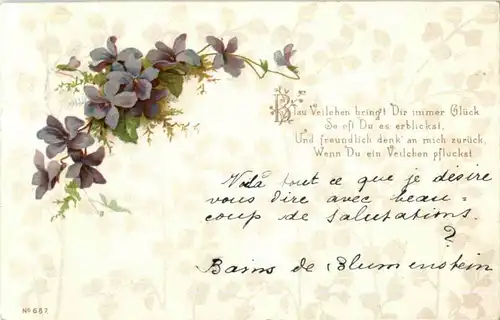 Blau Veilchen bringt Dir immer Glück
So oft Du es erblickst,
Und freundlich denk' an mich zurück,
Wenn Du ein Veilchen pfluckst
Voilà tout ce que je désire
vous dire avec beau=
coup de salutations.
?
Bains de Blumenstein
No 687